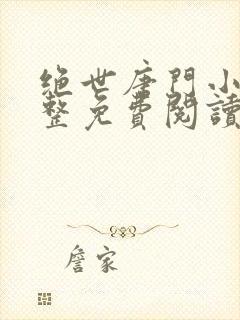 绝世唐門小
整免費閱讀
詹家